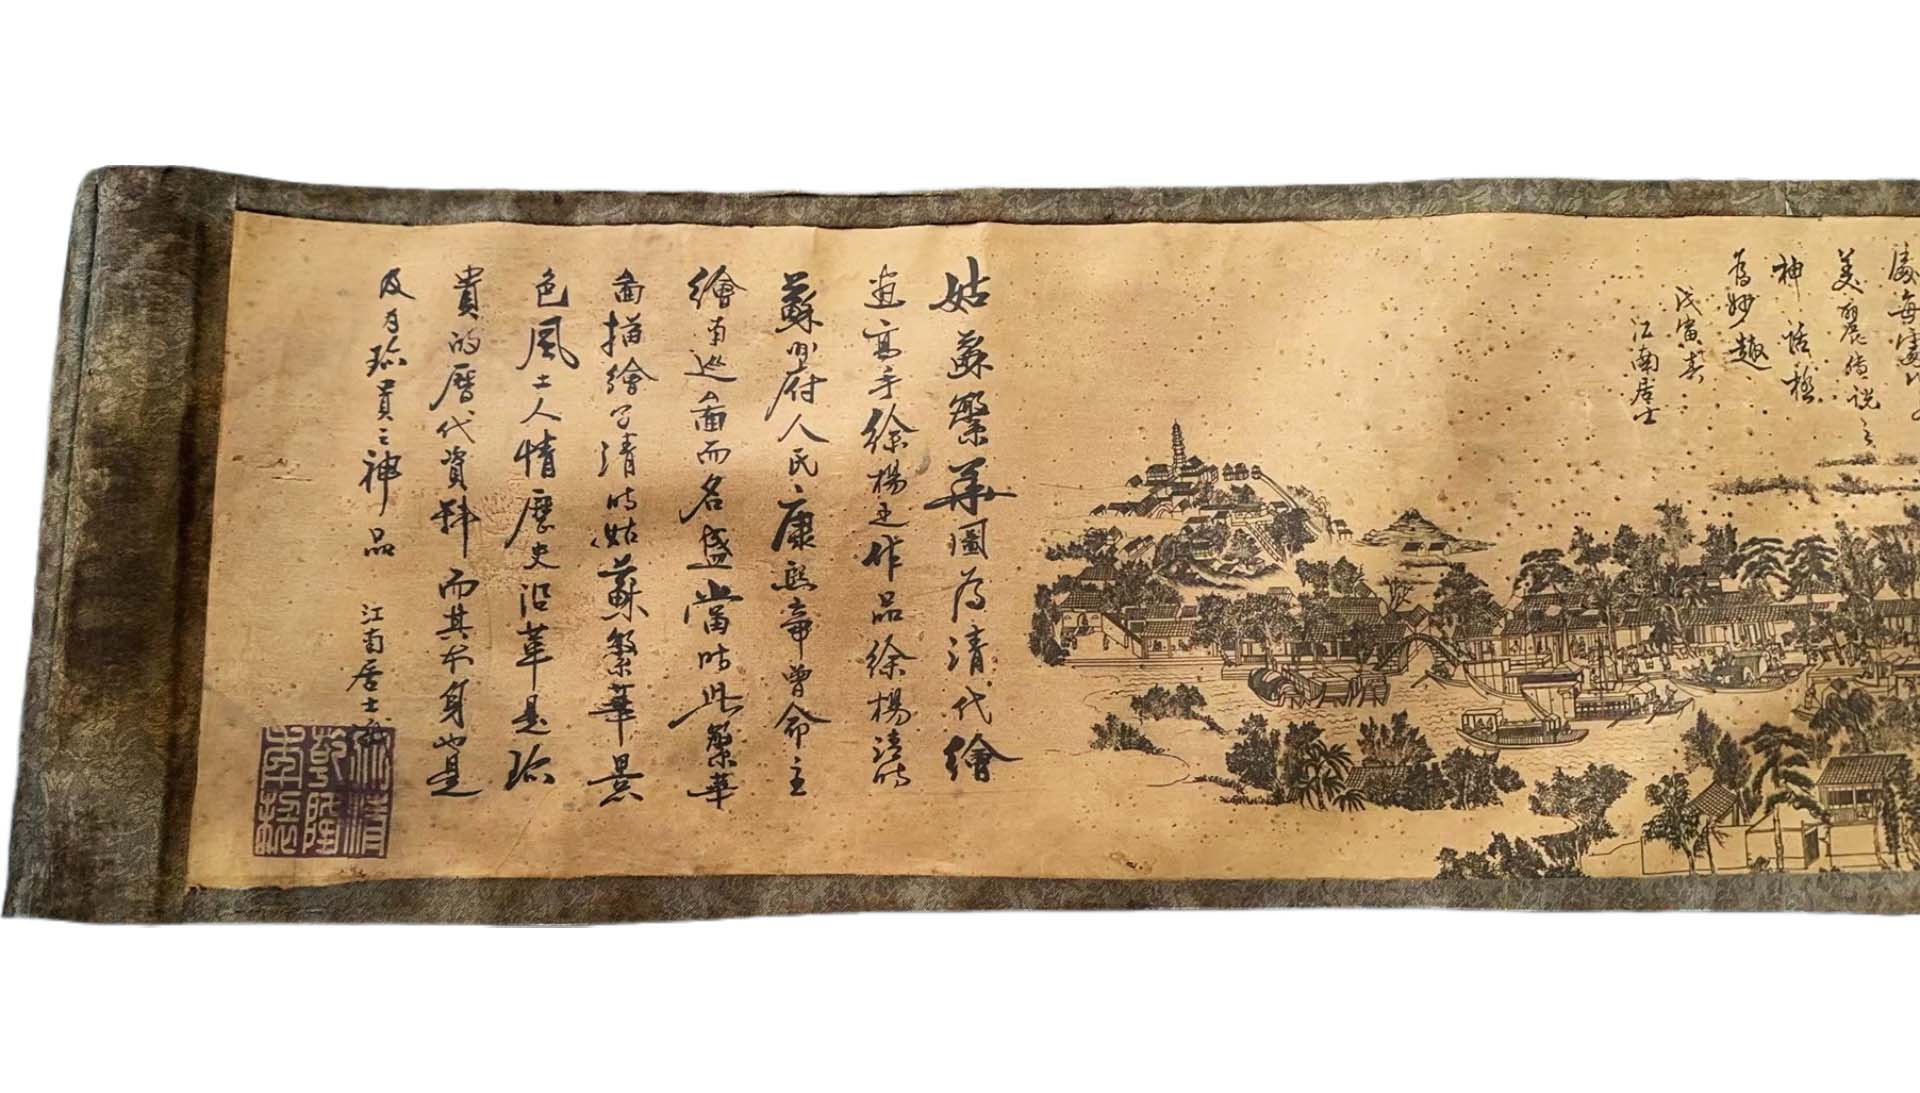 處每處
美麗傳說之
神話極
為妙趣
戊寅春
江南居士
姑蘇繁華圖為清代繪
畫高手徐楊之作品徐楊清時
蘇州府人民康熙帝曾命主
繪南巡圖而名盛當時此繁華
畫描繪了清時姑蘇繁華景
色風土人情歷史沿革是珍
貴的歷代資料而其本身也是
及為珍貴之神品
江南居士